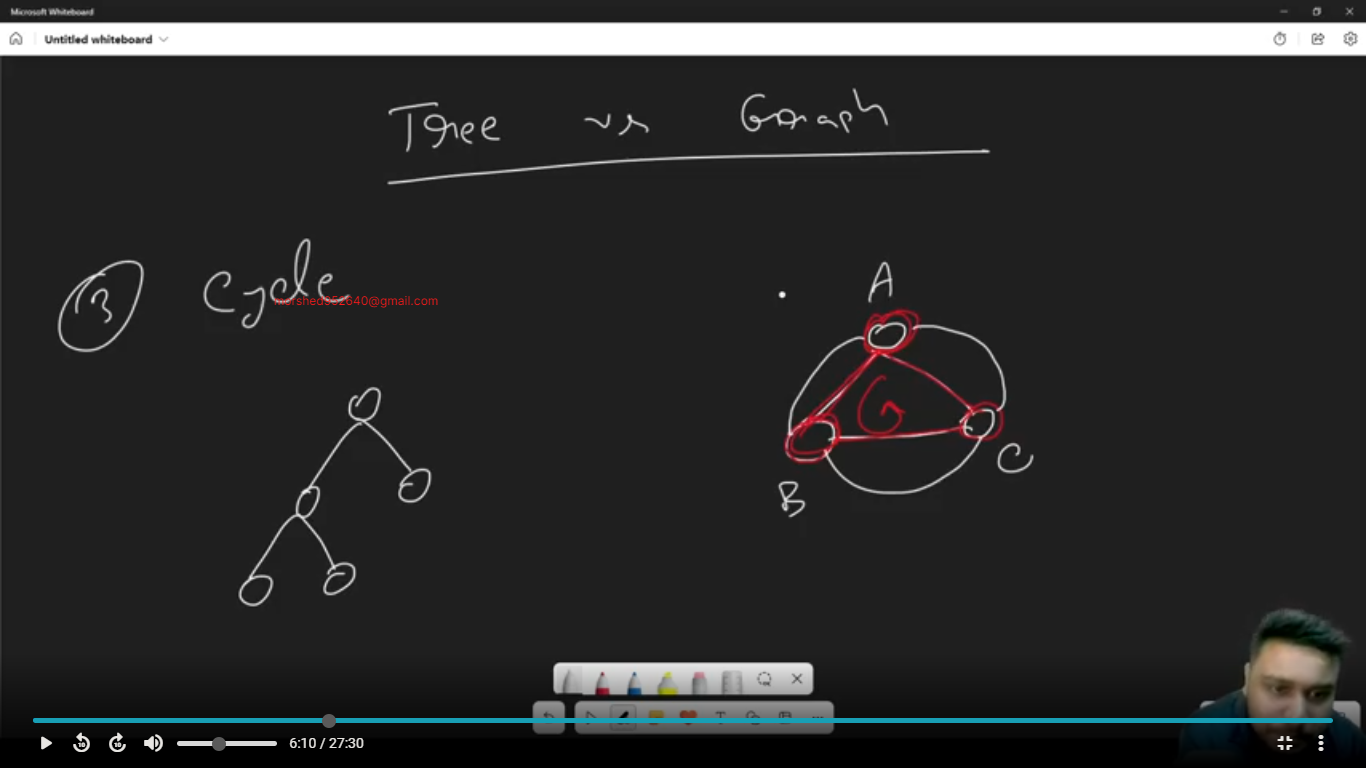 Microsoft Whiteboard
Untitled whiteboard
Tree vs Graph
3 Cycle
morshed352640@gmail.com
A
G
B
C
10
10
6:10 / 27:30